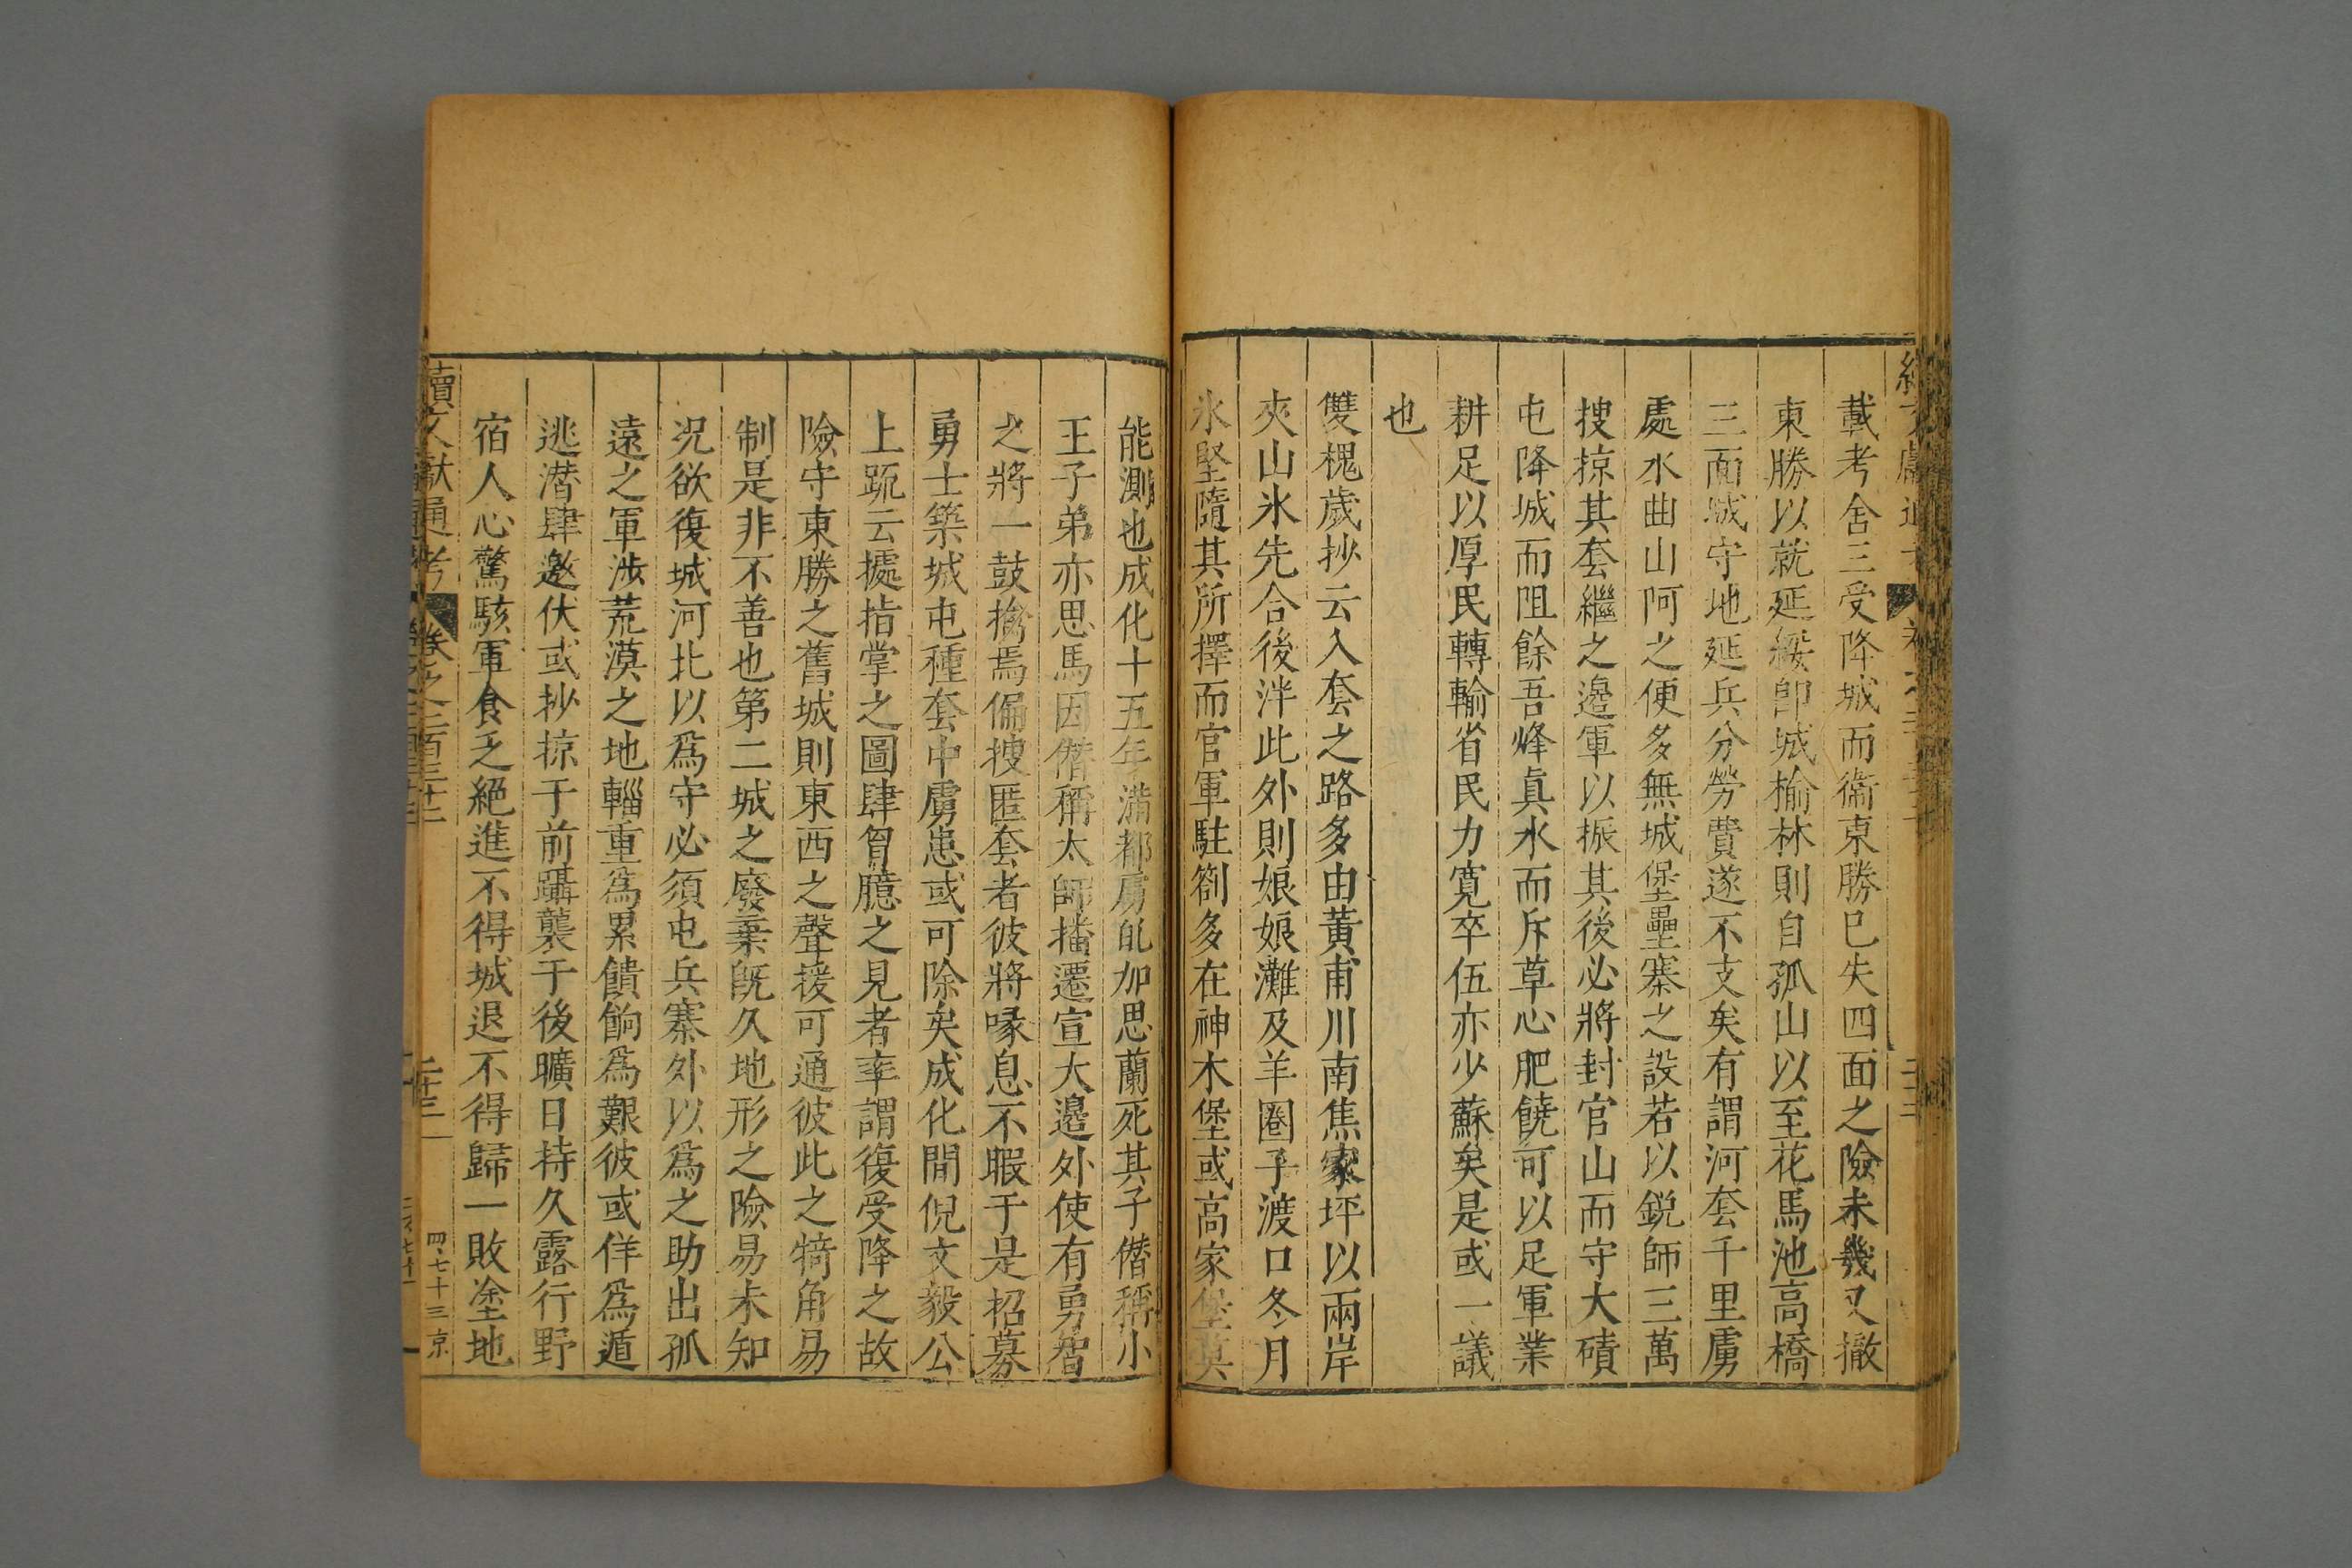 載考舍三受降城而衞東勝已失四面之險未幾又撤
東勝以就延綏卽城榆林則自孤山以至花馬池高橋
三面城守地延兵分勞費遂不支矣有謂河套千里虜
處水曲山阿之便多無城堡壘寨之設若以銳師三萬
搜掠其套繼之邊軍以振其後必將封官山而守大磧
屯降城而阻餘吾烽真水而斥草心肥饒可以足軍業
耕足以厚民轉輸省民力寬卒伍亦少蘇矣是或一議
也
雙槐歲抄云入套之路多由黃甫川南焦家坪以兩岸
夾山氷先合後泮此外則娘娘灘及羊圈子渡口冬月
氷堅隨其所擇而官軍駐劄多在神木堡或高家堡莫
能測也成化十五年滿都虜癿加思蘭死其子僭稱小
王子弟亦思馬因僭稱太師播遷宣大邊外使有勇智
之將一鼓擒焉偏搜匿套者彼將喙息不暇于是招募
勇士築城屯種套中虜患或可除矣成化間倪文毅公
上䟽云據指掌之圖肆胷臆之見者率謂復受降之故
險守東勝之舊城則東西之聲援可通彼此之犄角易
制是非不善也第二城之廢棄既久地形之險易未知
況欲復城河北以爲守必須屯兵寨外以爲之助出孤
遠之軍涉荒漠之地輜重爲累饋餉爲艱彼或佯爲遁
逃潛肆邀伏或抄掠于前躡襲于後曠日持久露行野
宿人心驚駭軍食乏絕進不得城退不得歸一敗塗地
續文獻通考 卷之二百三十二 二十三 四七十三 京